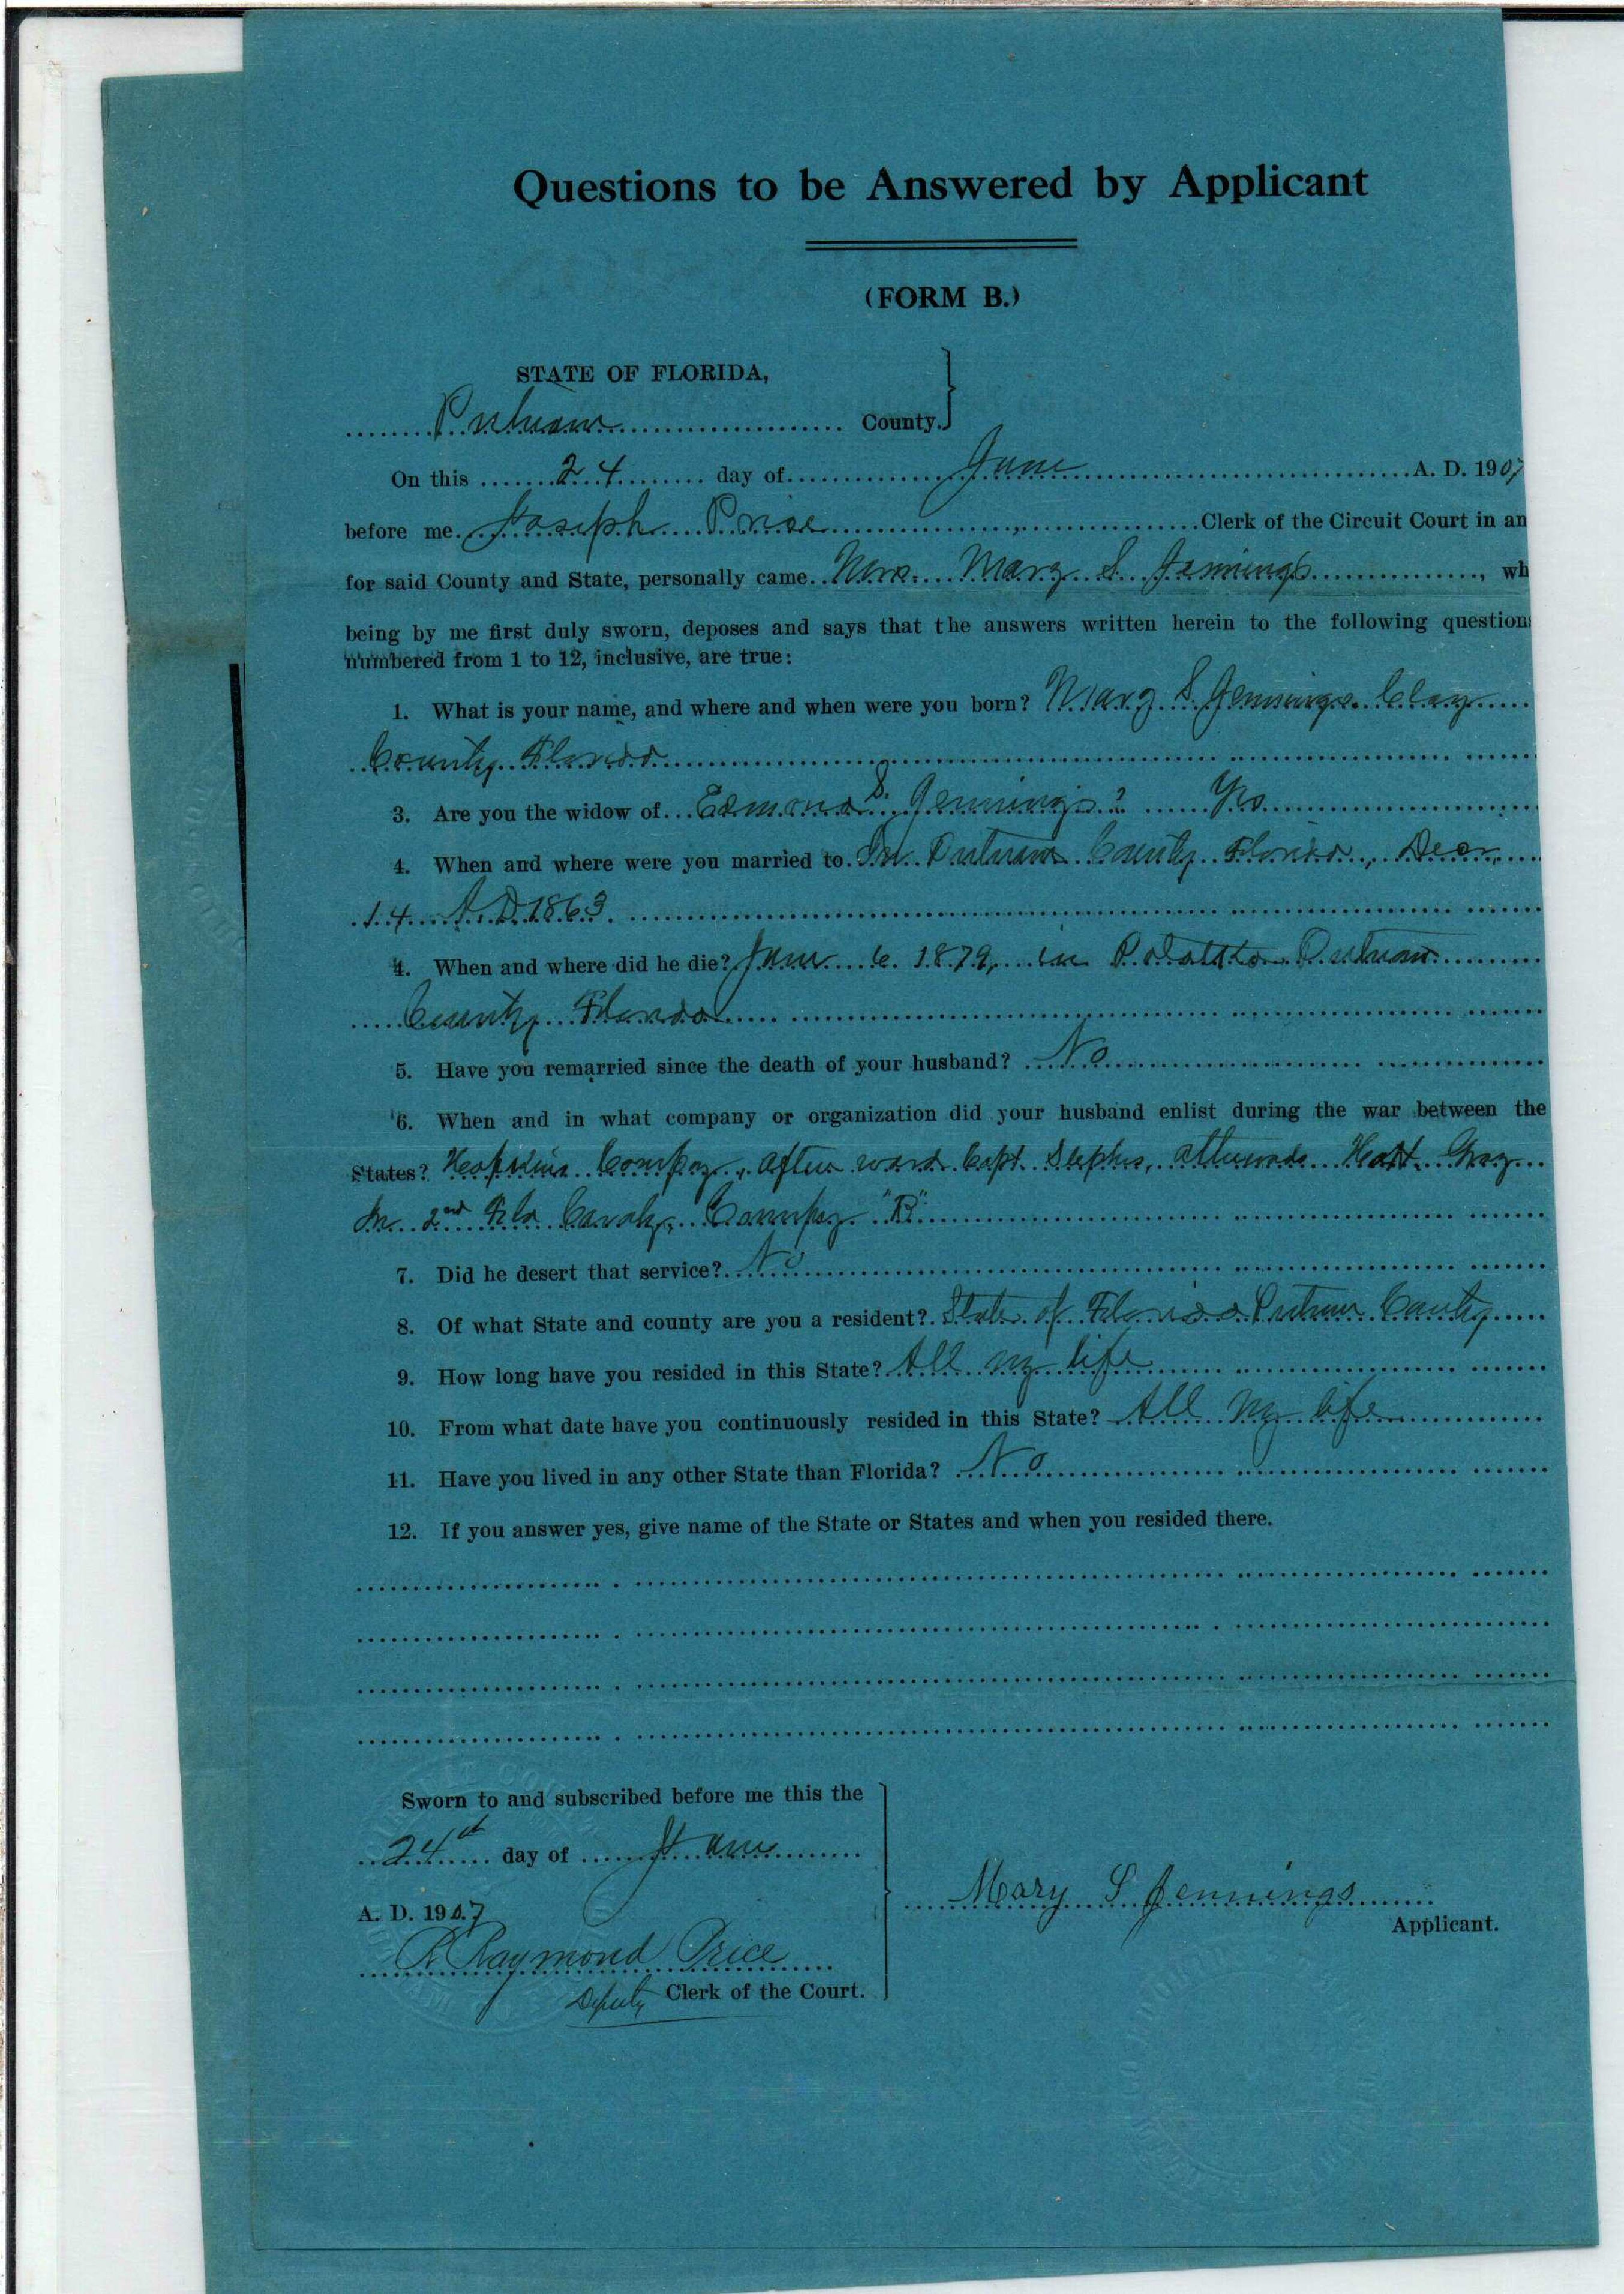 Questions to be Answered by Applicant
(FORM B.)
STATE OF FLORIDA,
Putnam County.
On this 24 day of June A. D. 1907
before me Joseph Price Clerk of the Circuit Court in an
for said County and State, personally came Mrs. Mary S. Jennings, wh
being by me first duly sworn, deposes and says that the answers written herein to the following question
numbered from 1 to 12, inclusive, are true:
1. What is your name, and where and when were you born? Mary S. Jennings Clay
County Florida
3. Are you the widow of Edmond S. Jennings? Yes
4. When and where were you married to In Putnam County Florida, Decr
14 A.D. 1863
4. When and where did he die? June 6 1879, in Palatka Putnam
County Florida
5. Have you remarried since the death of your husband? No
6. When and in what company or organization did your husband enlist during the war between the
States? Hopkins Compay, after ward Capt. Stephens, afterwards Gray
In 2nd Fla Cavaly, Compay "B"
7. Did he desert that service? No
8. Of what State and county are you a resident? State of Florida Putnam County
9. How long have you resided in this State? All my life
10. From what date have you continuously resided in this State? All my life
11. Have you lived in any other State than Florida? No
12. If you answer yes, give name of the State or States and when you resided there.
Sworn to and subscribed before me this the
24th day of June
A. D. 1907
Mary S Jennings
Applicant.
R Raymond Price
Deputy Clerk of the Court.